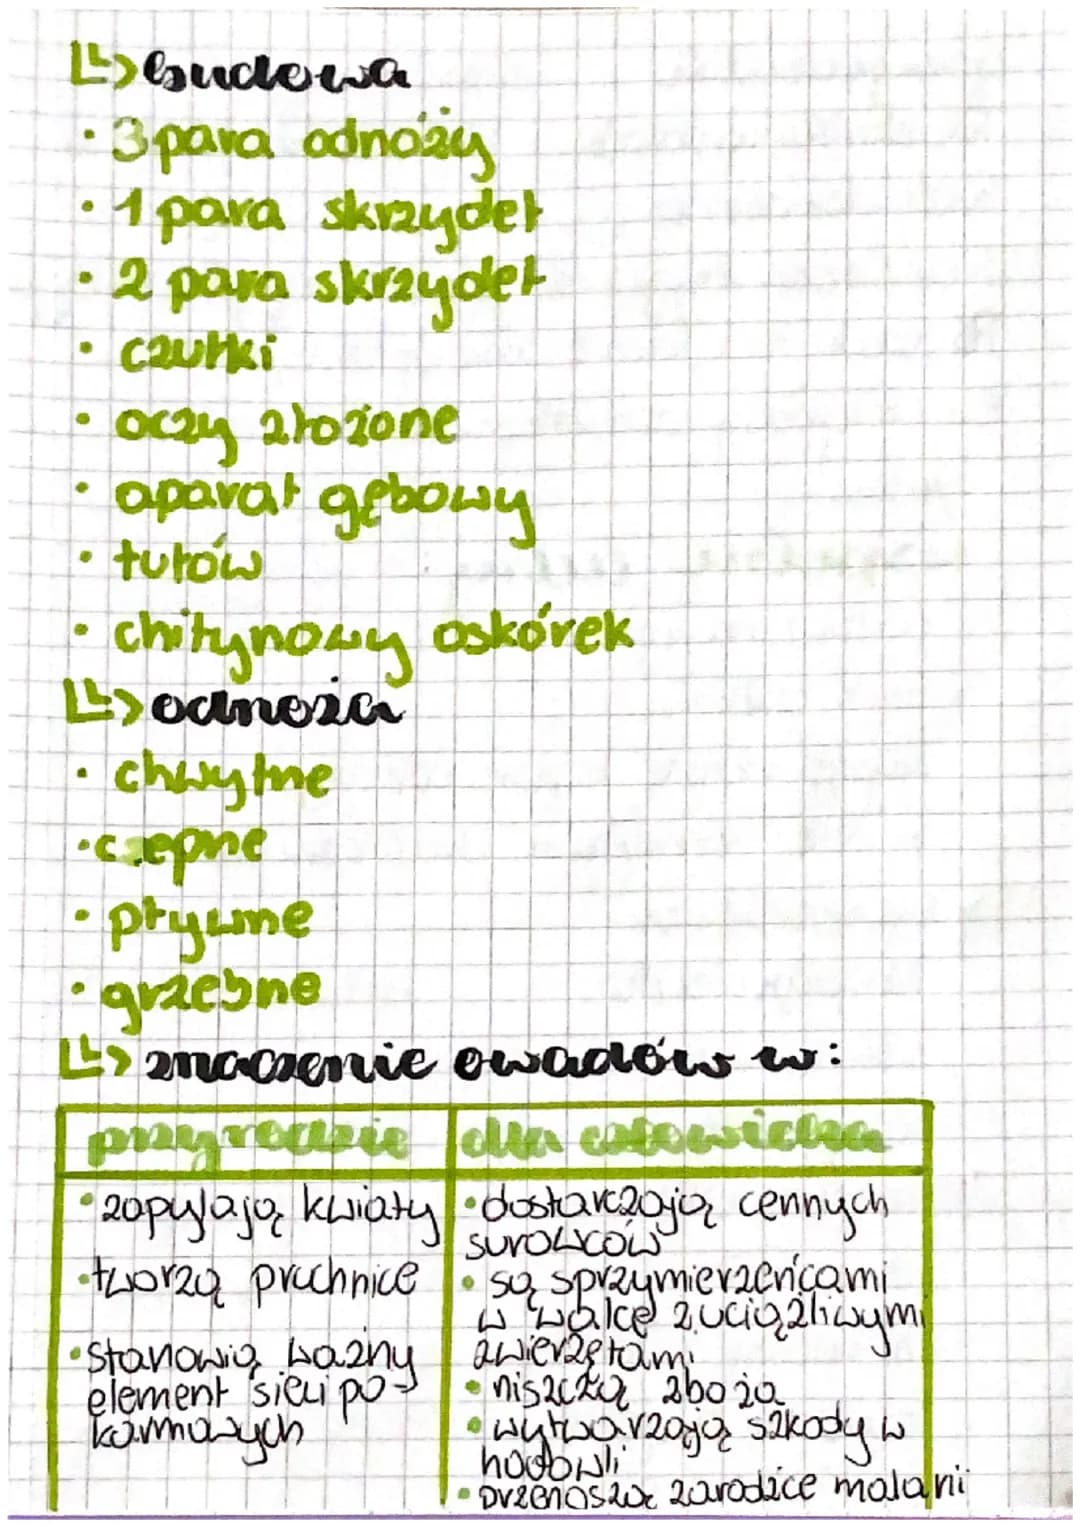 budowa
· 3 para odnóży
· 1 para skrzydeł
· 2 para skrzydeł
· czułki
· oczy złożone
· aparat gębowy
· tułów
· chitynowy oskórek
odnoża
· chwytne
· czepne
· pływne
· grzebne
znaczenie owadów w:
przyrodzie
· zapylają kwiaty
· tworzą pruchnice
· stanowią ważny
element sieci po-
karmowych
dla człowieka
· dostarczają cennych
surowców
· są sprzymierzeńcami
w walce z uciążliwymi
zwierzętami
· niszczą zboża
· wytwarzają szkody w
hodowli
· przenoszą zarodzice malarii